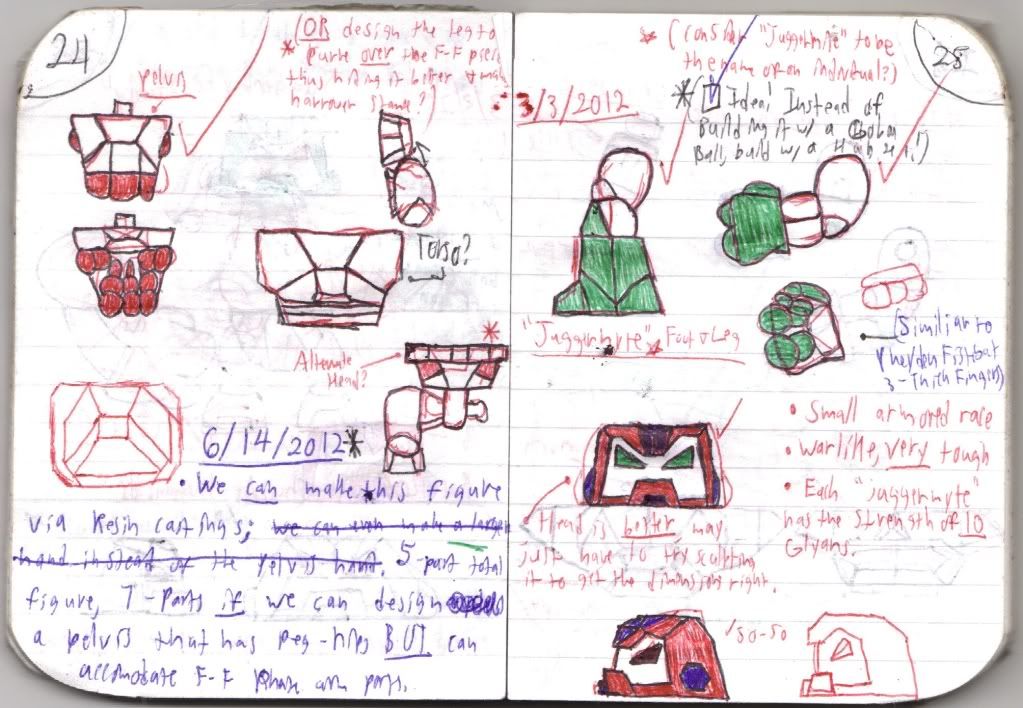 24
pelvis
(OR design the leg to
* curve over the F-F piece
thus hiding it better & make
narrower stance?)
Torso?
Alternate
Head?
*
6/14/2012*
• We can make this figure
via Resin castings; we can even make a larger
hand instead of the pelvis hand. 5-part total
figure, 7-parts if we can design
a pelvis that has peg-hips BUT can
accomodate F-F Phase arm parts.
28
* (consider "Juggernyte" to be
the name of an individual?)
3/3/2012
* Idea! Instead of
Building it w/ a
Ball, build w/ a
"Juggernyte" Foot & Leg
(Similiar to
Pheyden Fistbat
3-Thich Fingers)
• Small armored race
• warlike, very tough
• Each "juggernyte"
has the strength of 10
Glyans.
Head is better may
just have to try sculpting
it to get the dimensions right.
√50-50